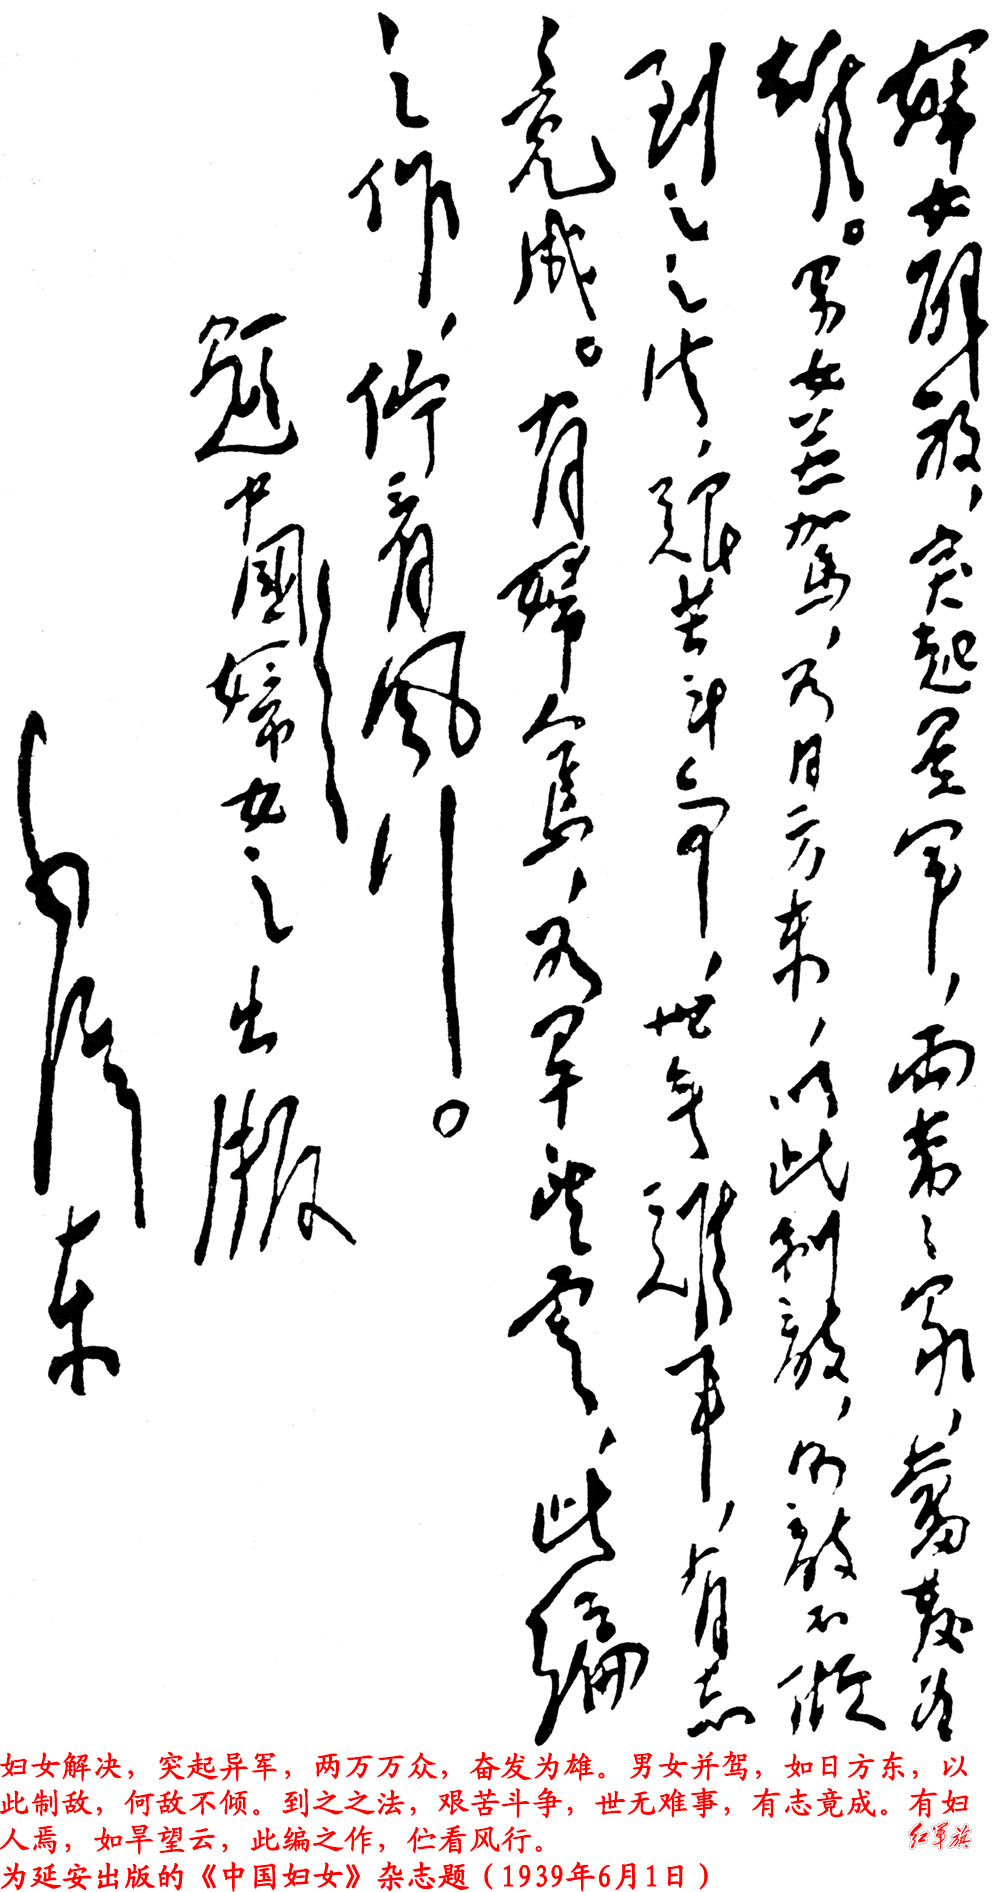 婦女解放，突起異軍，兩萬々眾，奮發為
雄。男女並駕，如日方東，以此制敵，何敵不傾
到之之法，艱苦斗爭，世無難事，有志
竟成。有婦人焉，如旱望雲，此編
之作，伫看風行。
題中國婦女之出版
毛澤東
妇女解决，突起异军，两万万众，奋发为雄。男女并驾，如日方东，以
此制敌，何敌不倾。到之之法，艰苦斗争，世无难事，有志竟成。有妇
人焉，如旱望云，此编之作，伫看风行。
红軍旗
为延安出版的《中国妇女》杂志题（1939年6月1日）